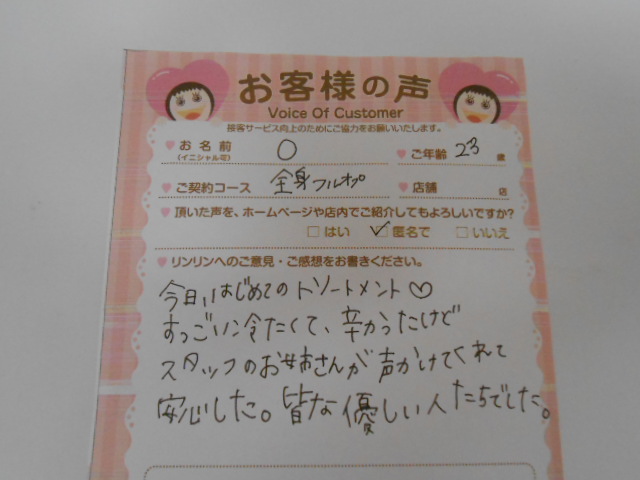 お客様の声
Voice Of Customer
接客サービス向上のためにご協力をお願いいたします。
お名前 O ご年齢 23 歳
(イニシャル可)
ご契約コース 全身フルオプ 店舗 店
頂いた声を、ホームページや店内でご紹介してもよろしいですか?
□はい ☑匿名で □いいえ
リンリンへのご意見・ご感想をお書きください。
今日、はじめてのトリートメント♡
すっごい冷たくて、辛かったけど
スタッフのお姉さんが声かけてくれて
安心した。皆な優しい人たちでした。